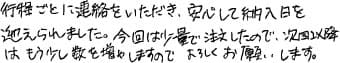 行程ごとに連絡をいただき、安心して納入日を
迎えられました。今回は少量で注文したので、次回以降
はもう少し数を増やしますので よろしくお願いします。